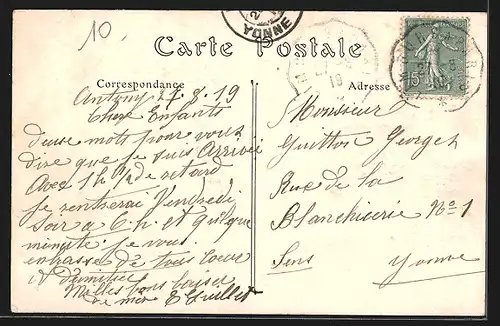 10
YONNE
Carte Postale
Correspondance
Adresse
15c
27. 8. 19
Chers Enfants
deux mots pour vous
dire que je suis Arrivée
Avec 1h 1/2 de retard
je rentrerai Vendredi
soir a 6. h. et quelque
minute. je vous
embrasse de tous coeur
et d'amitié
Milles bons baiser
de mer
Monsieur
Guitton Georges
Rue de la
Blanchiserie No 1
Sens Yonne